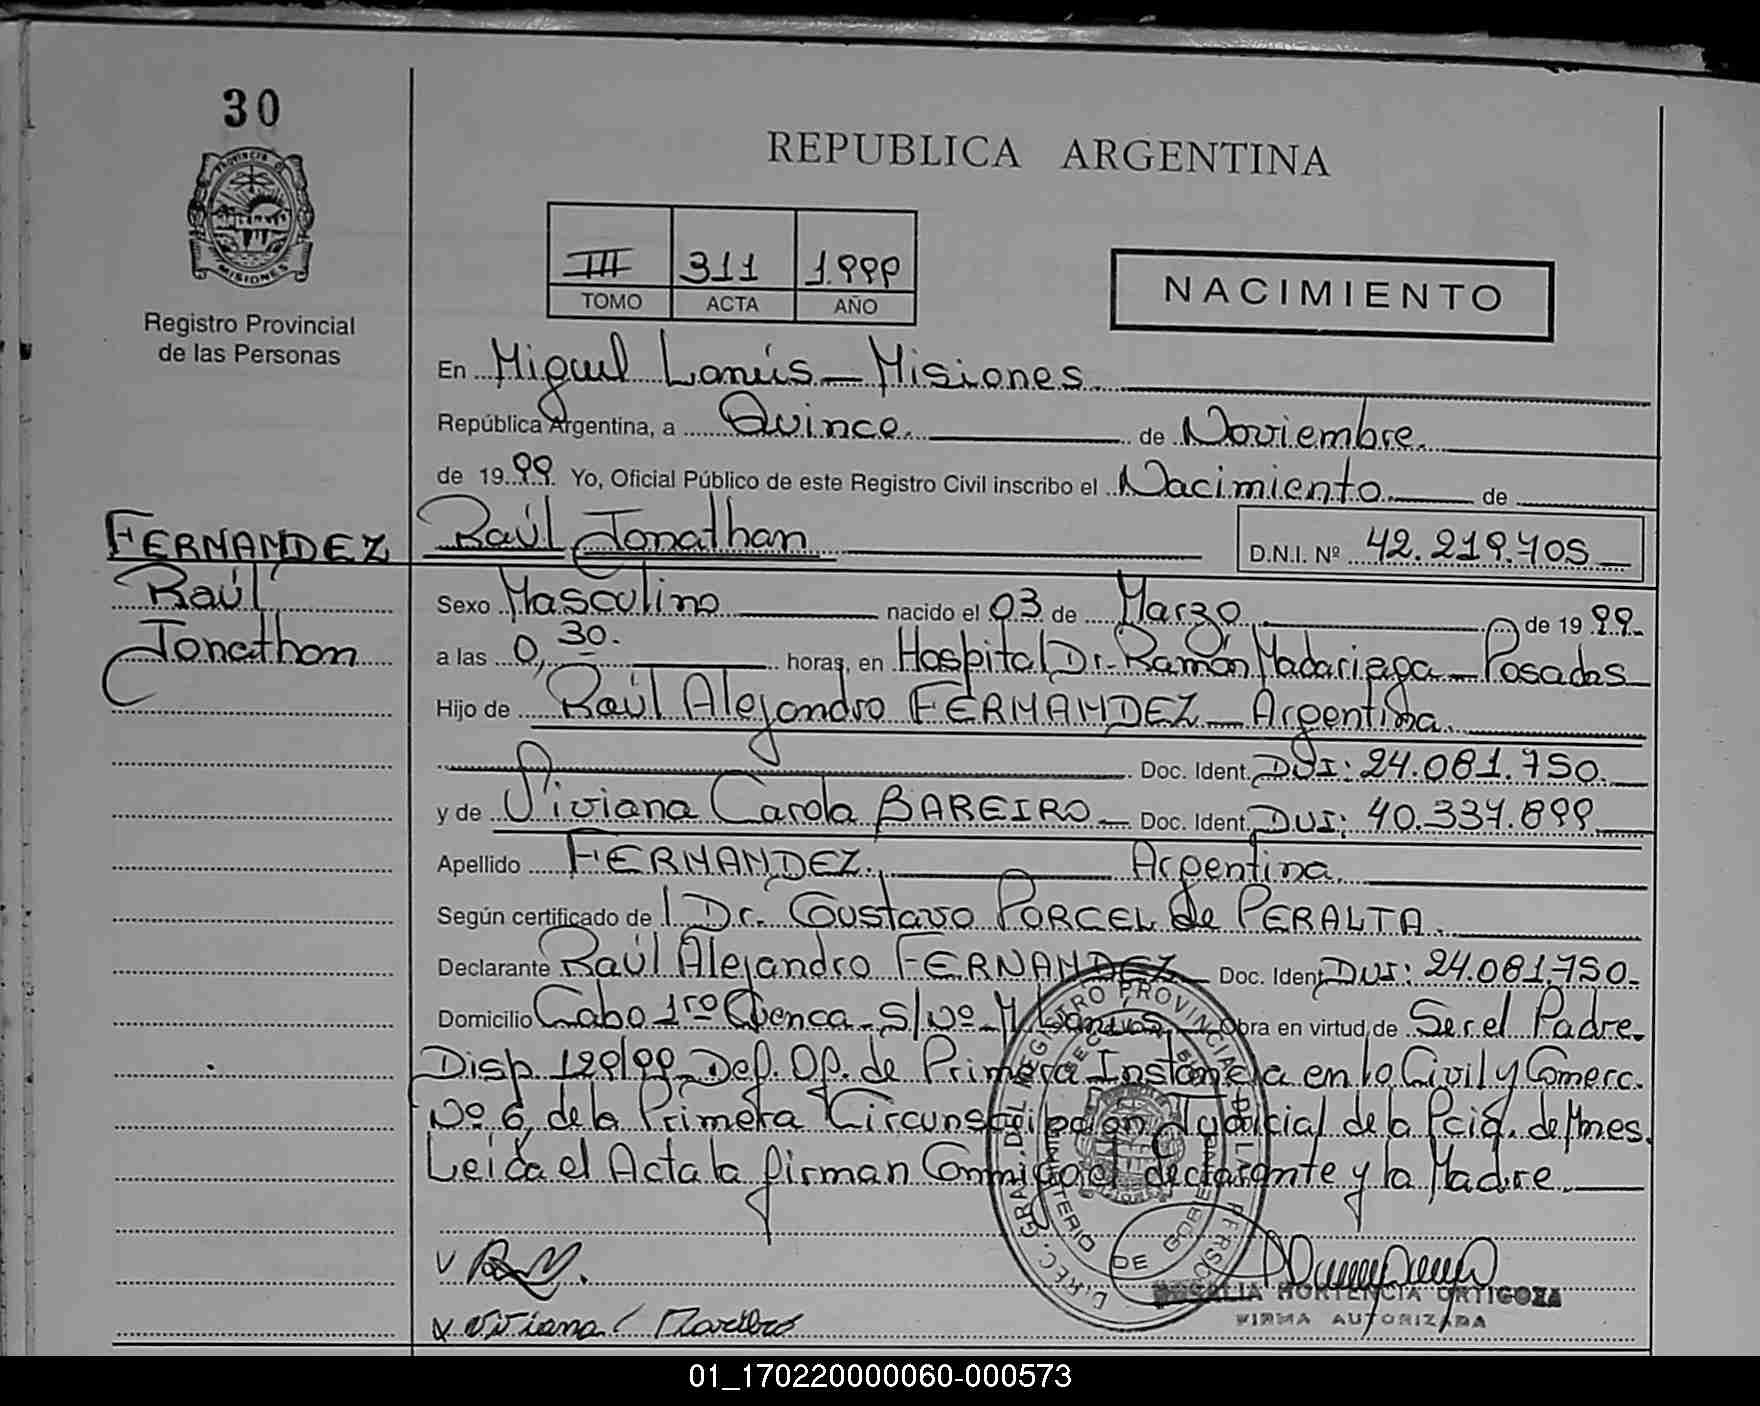 30
PROVINCIA DE
MISIONES
Registro Provincial
de las Personas
REPUBLICA ARGENTINA
III 311 1.999
TOMO ACTA AÑO
NACIMIENTO
En Miguel Lanús - Misiones
República Argentina, a Quince. de Noviembre.
de 19 99. Yo, Oficial Público de este Registro Civil inscribo el Nacimiento de
FERNANDEZ
Raúl
Jonathan
Raúl Jonathan D.N.I. Nº 42.219.705
Sexo Masculino nacido el 03 de Marzo de 19 99.
a las 0,30. horas, en Hospital Dr. Ramón Madariaga - Posadas
Hijo de Raúl Alejandro FERNANDEZ - Argentina.
Doc. Ident. DNI: 24.081.750.
y de Viviana Carola BAREIRO - Doc. Ident. DNI: 40.337.899
Apellido FERNANDEZ. Argentina.
Según certificado del Dr. Gustavo PORCEL de PERALTA.
Declarante Raúl Alejandro FERNANDEZ - Doc. Ident. DNI: 24.081.750.
Domicilio Cabo 1ro Cuenca - S/Nº - M. Lanús - Obra en virtud de Ser el Padre.
Disp. 129/99 - Def. Of. de Primera Instancia en lo Civil y Comerc.
Nº 6, de la Primera Circunscripción Judicial de la Pcia. de Mnes.
Leida el Acta la firman Conmigo el declarante y la Madre
DIREC. GRAL. DEL REGISTRO PROVINCIAL DE LAS PERSONAS
MINISTERIO DE GOBIERNO
V
v Viviana C Bareiro
ROSALIA HORTENCIA ORTIGOZA
FIRMA AUTORIZADA
01_170220000060-000573